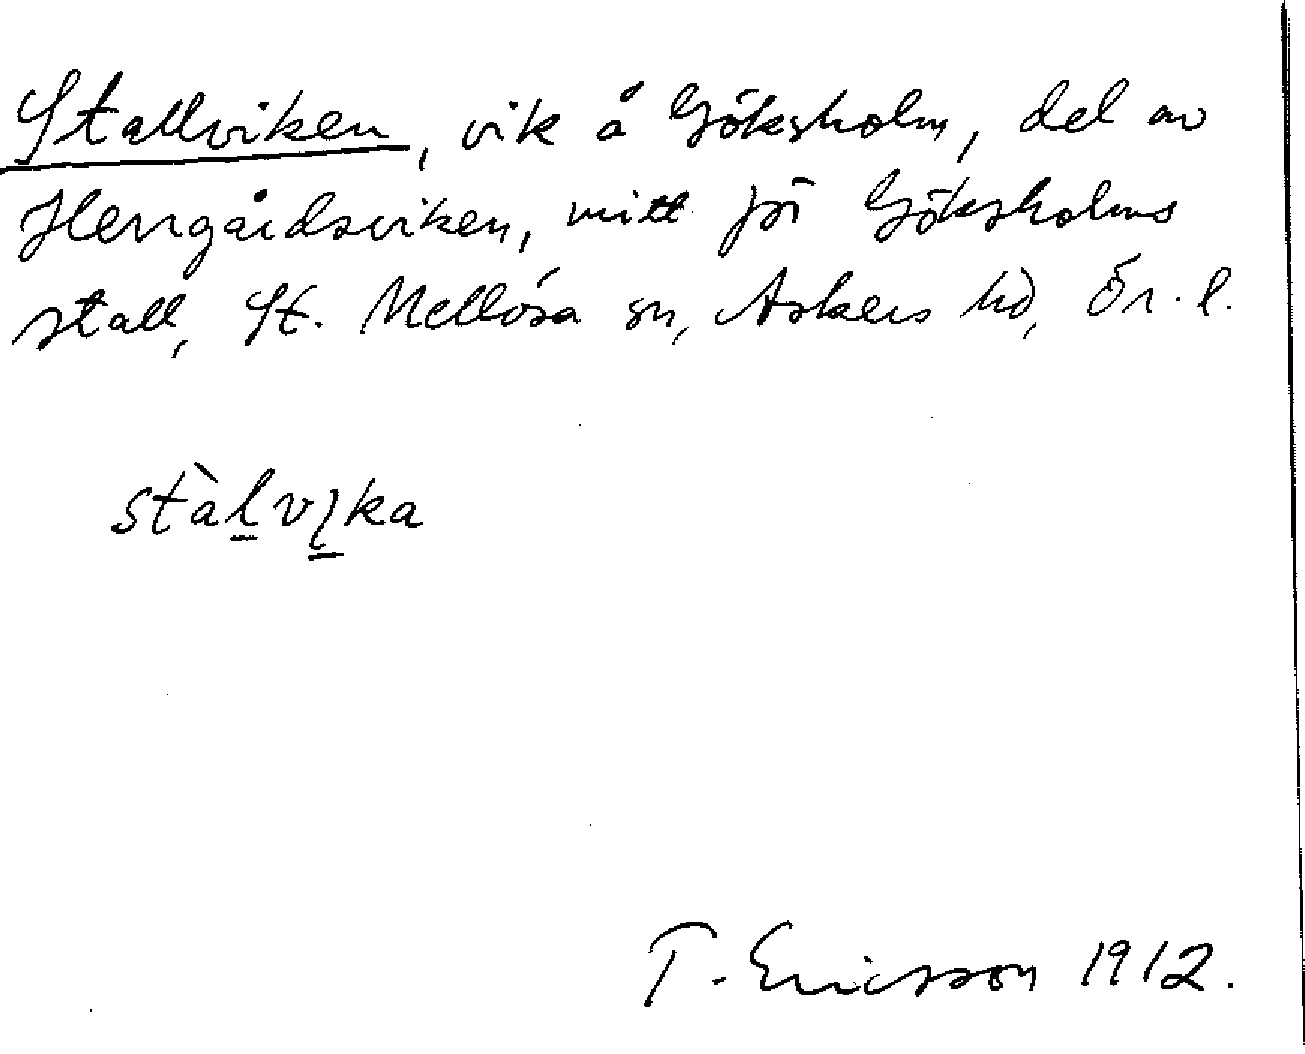 Stallviken, vik å Göksholm, del av
Herrgårdsviken, mitt för Göksholms
stall, St. Mellösa sn, Askers hd, Ör. l.
stàl̲vi̲ka
T. Ericsson 1912.